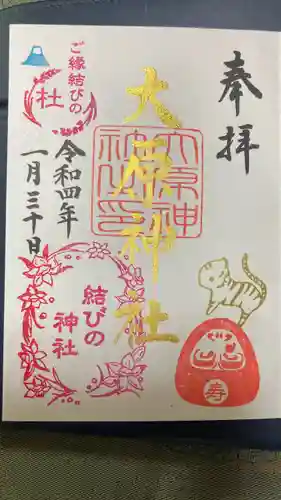 奉拝
大原神社
大原神社印
ご縁結びの
社
令和四年
一月三十日
結びの
神社
寿